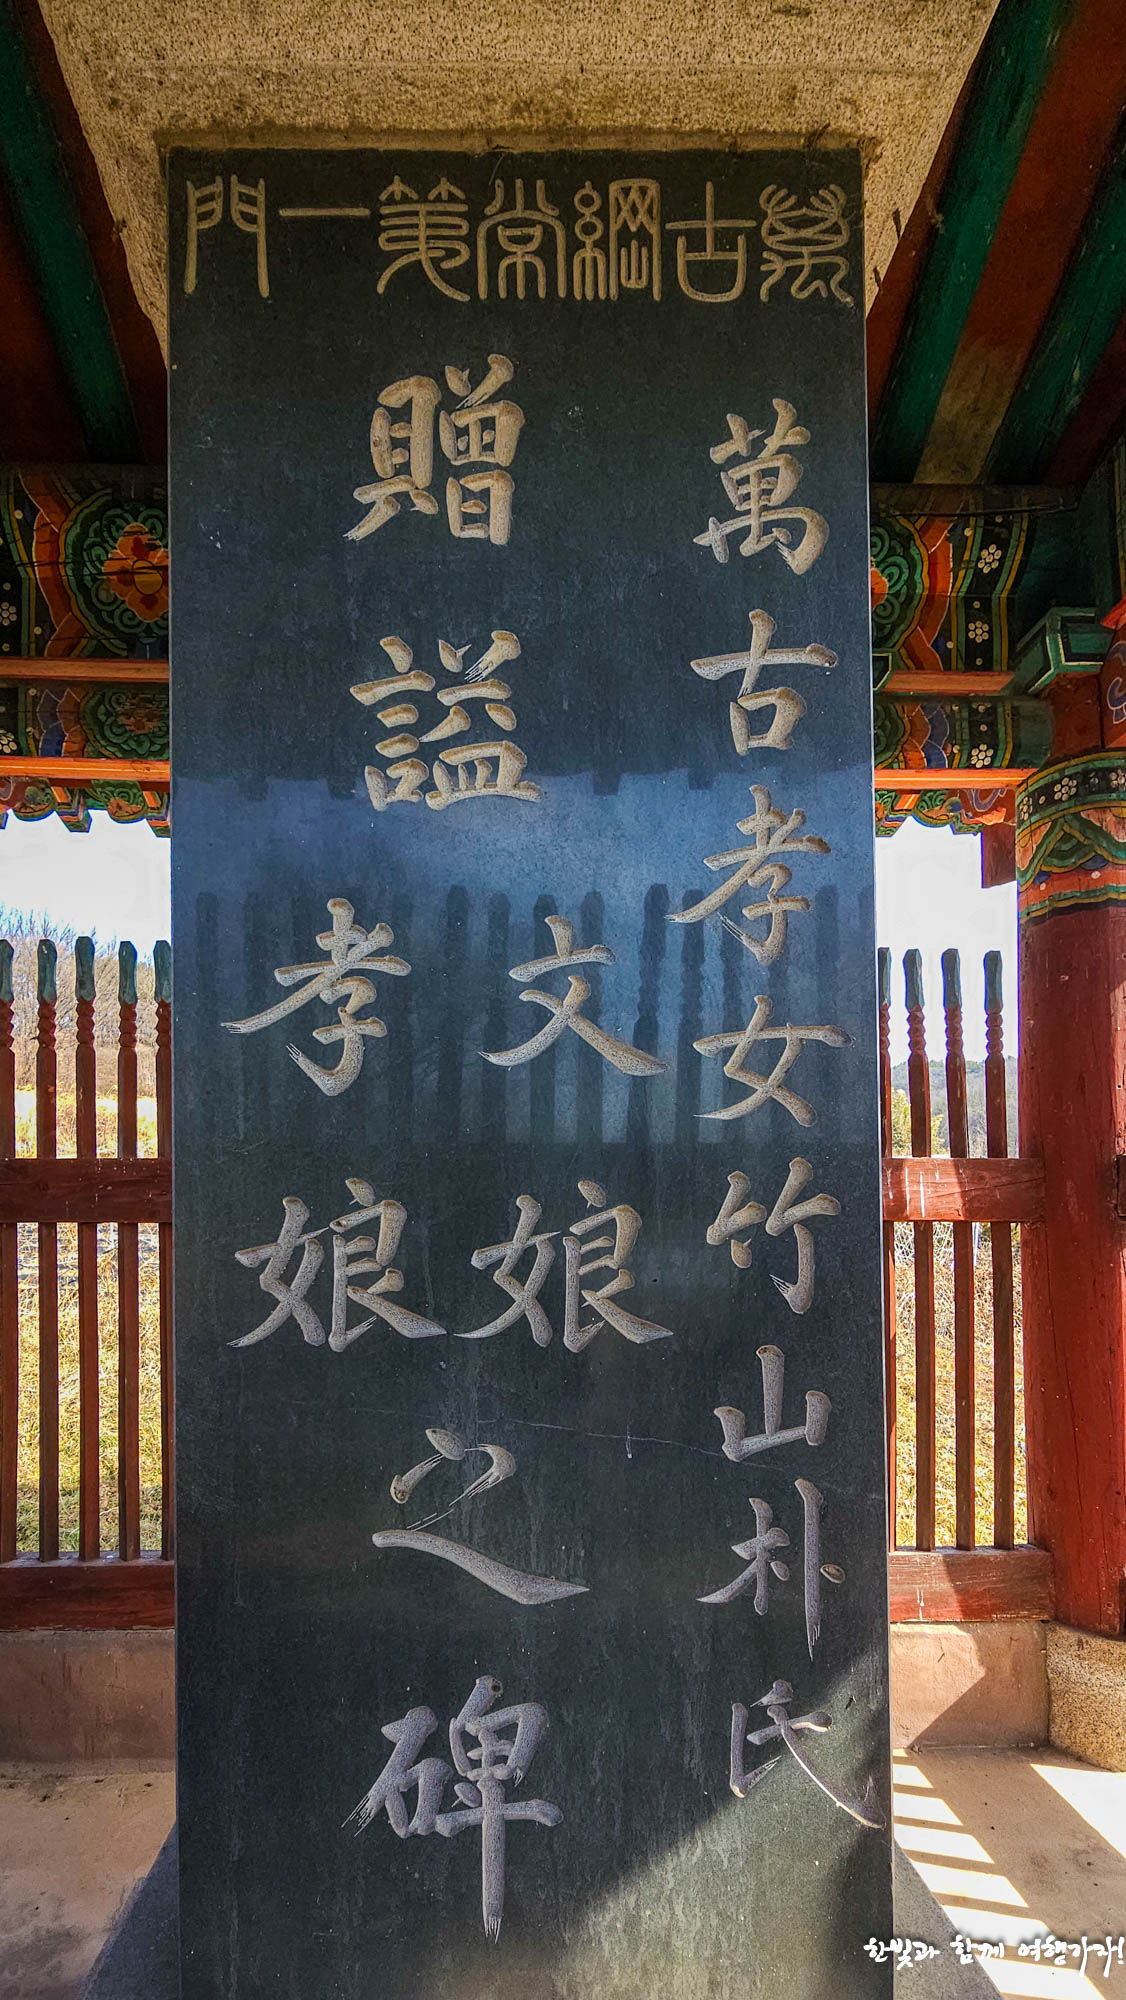 萬古綱常第一門
萬古孝女竹山朴氏
贈謚文娘孝娘之碑
한빛과 함께 여행가자!